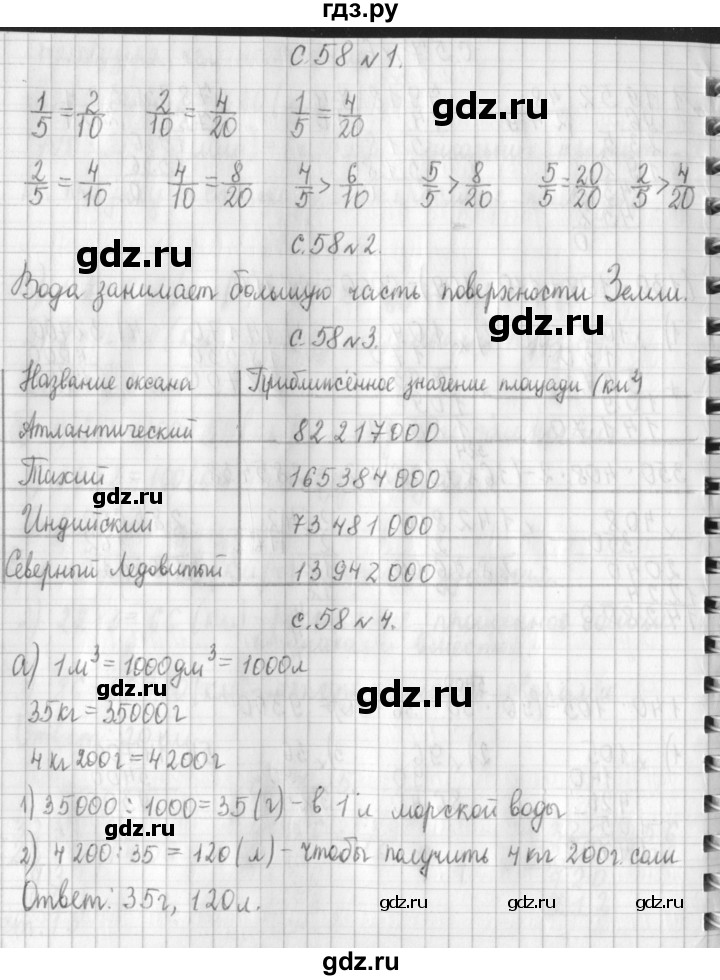 гдз.ру
с.58 №1.
1/5 = 2/10 2/10 = 4/20 1/5 = 4/20
gdz.ru
2/5 = 4/10 4/10 = 8/20 4/5 > 6/10 5/5 > 8/20 5/5 = 20/20 2/5 > 4/20
с.58 №2.
gdz.ru
Вода занимает большую часть поверхности Земли.
gdz.ru
с.58 №3.
Название океана Приближённое значение площади (км²)
Атлантический 82 217 000
Тихий 165 384 000
gdz.ru
Индийский 73 481 000
Северный Ледовитый 13 942 000
с.58 №4.
а) 1 м³ = 1000 дм³ = 1000 л
gdz.ru
gdz.ru
35 кг = 35000 г
4 кг 200 г = 4200 г
1) 35000 : 1000 = 35 (г) - в 1 л морской воды
gdz.ru
2) 4200 : 35 = 120 (л) - чтобы получить 4 кг 200 г. соли
Ответ: 35 г, 120 л.
gdz.ru gdz.ru gdz.ru
gdz.ru
gdz.ru